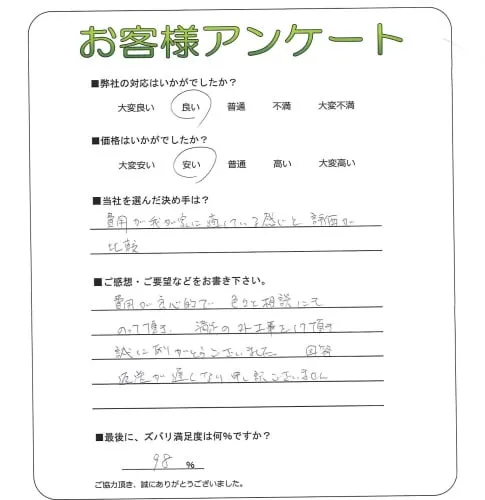 お客様アンケート
■弊社の対応はいかがでしたか？
大変良い 良い 普通 不満 大変不満
■価格はいかがでしたか？
大変安い 安い 普通 高い 大変高い
■当社を選んだ決め手は？
費用が我が家に適している感じと 評価が
比較
■ご感想・ご要望などをお書き下さい。
費用が良心的で 色々と相談にも
のって頂き、満足の 工事をして頂き
誠にありがとうございました 回答
返信が遅くなり申し訳ございません
■最後に、ズバリ満足度は何％ですか？
98 ％
ご協力頂き、誠にありがとうございました。